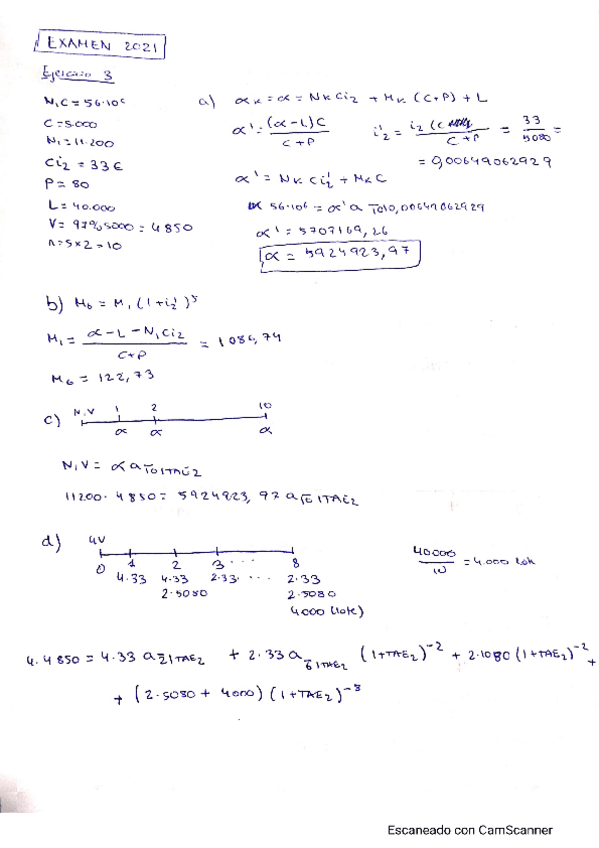 EXAMEN 2021
Ejercicio 3
N₁C = 56·10⁶
C = 5.000
N₁ = 11.200
Ci₂ = 33 €
P = 80
L = 40.000
V = 97% 5000 = 4850
n = 5×2 = 10
a) αₖ = α = Nₖ Ci₂ + Mₖ (C+P) + L
α' = (α-L)C / C+P
i'₂ = i₂ (C / C+P = 33 / 5080 =
= 0,00649062929
α' = Nₖ Ci'₂ + Mₖ C
56·10⁶ = α' a 10 0,00649062929
α' = 5707169,26
α = 5924923,97
b) M₆ = M₁ (1+i'₂)⁵
M₁ = α - L - N₁Ci₂ / C+P = 1086,74
M₆ = 122,73
c) N₁V 1 2 10
α α α
N₁V = α a 10 TAE₂
11200·4850 = 5924923,97 a 10 TAE₂
d) 4V
0 1 2 3 ··· 8
4·33 4·33 2·33 ··· 2·33
2·5080 2·5080
4000 (lote)
40000 / 10 = 4.000 lote
4·4850 = 4·33 a 2 TAE₂ + 2·33 a 6 TAE₂ (1+TAE₂)⁻² + 2·5080 (1+TAE₂)⁻² +
+ (2·5080 + 4000) (1+TAE₂)⁻⁸
Escaneado con CamScanner